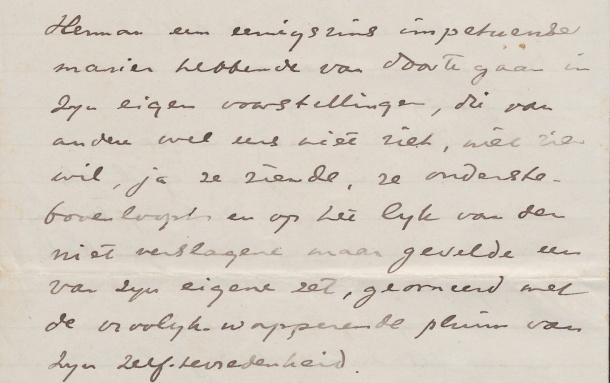 Herman een eenigszins impetueuse
manier hebbende van door te gaan in
zyn eigen voorstellingen, die van
andere wel eens niet ziet, niet zien
wil, ja ze ziende, ze onderste-
bovenloopt en op het lyk van den
niet verslagene maar gevelde een
van zyn eigene zet, georneerd met
de vroolyk-wapperende pluim van
zyn zelf-tevredenheid.